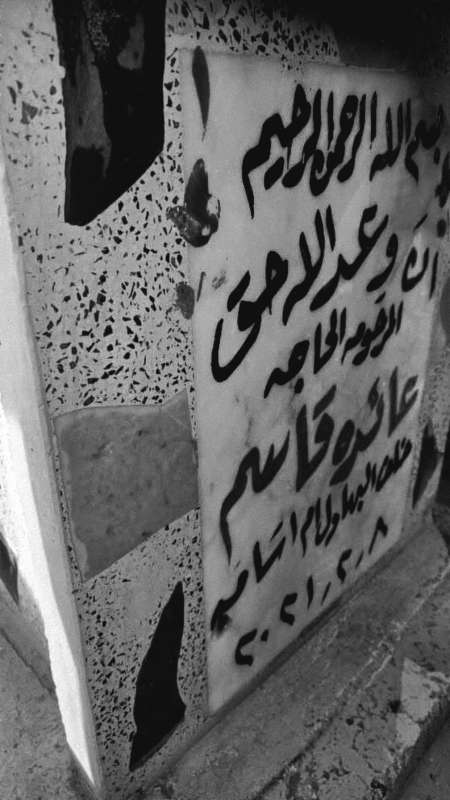 بسم الله الرحمن الرحيم
ان وعد الله حق
المرحومه الحاجه
عائده قاسم
ام اسامه
٢٠٢١/٢/٨